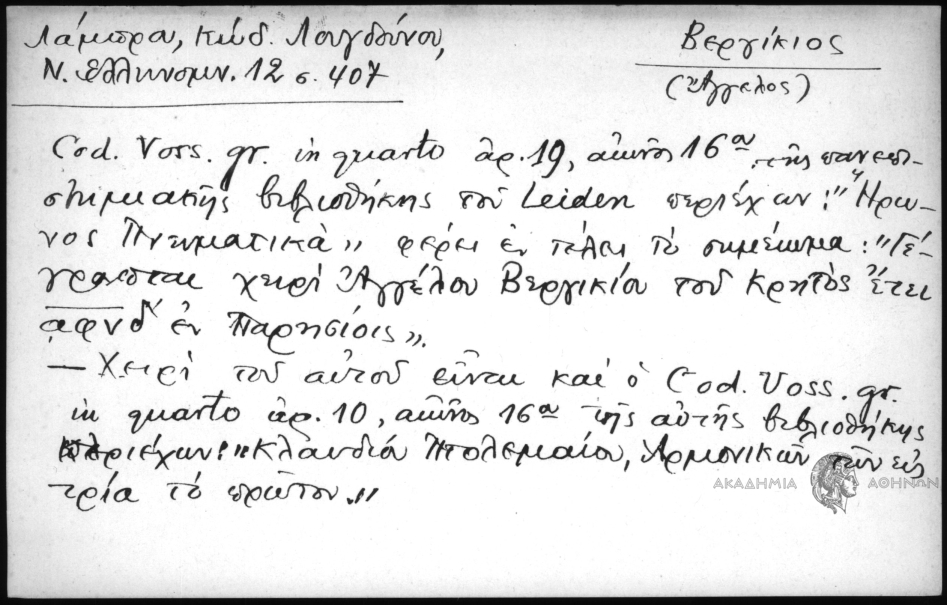 Λάμπρου, Κώδ. Λουγδούνου,
Ν. Ἑλληνομν. 12 σ. 407
Βεργίκιος
(Ἄγγελος)
Cod. Voss. gr. in quarto ἀρ. 19, αἰῶνος 16ου τῆς πανεπι-
στημιακῆς βιβλιοθήκης τοῦ Leiden περιέχων: "Ἥρω-
νος Πνευματικὰ" φέρει ἐν τέλει τὸ σημείωμα: "Γέ-
γραπται χειρὶ Ἀγγέλου Βεργικίου τοῦ Κρητὸς ἔτει
͵αφνδʹ ἐν Παρησίοις".
— Χειρὶ τοῦ αὐτοῦ εἶναι καὶ ὁ Cod. Voss. gr.
in quarto ἀρ. 10, αἰῶνος 16ου τῆς αὐτῆς βιβλιοθήκης
περιέχων: "Κλαυδίου Πτολεμαίου, Ἁρμονικῶν τῶν εἰς
τρία τὸ πρῶτον."
ΑΚΑΔΗΜΙΑ ΑΘΗΝΩΝ